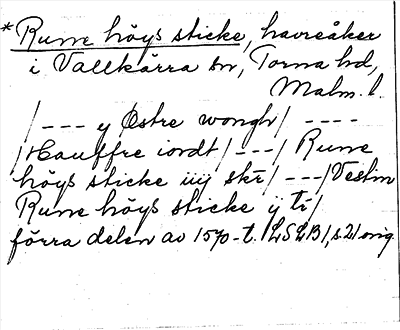 * Rune höyß sticke, havreåker
i Vallkärra sn, Torna hd,
Malm. l.
/ --- y Østre wongh / ----
/ Hauffre iordt / --- / Rune
höyß sticke iiij skē / --- / Vesten
Rune höyß sticke ÿ tī /
förra delen av 1570-t. LSLB 1, s. 21 orig.